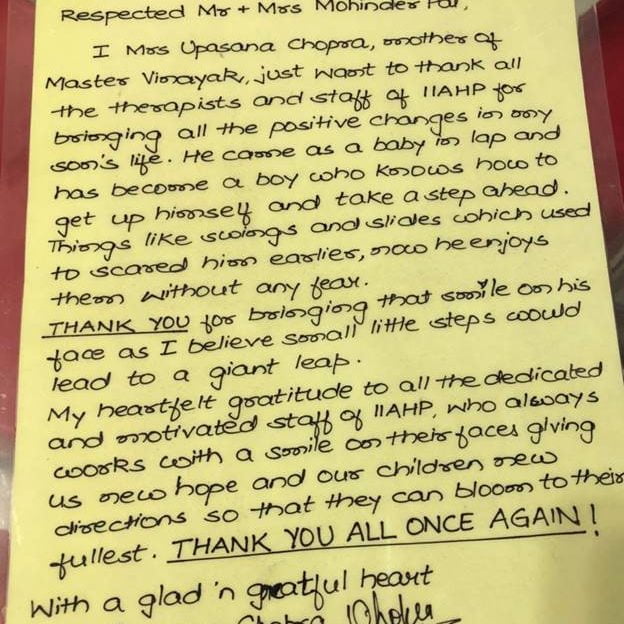 Respected Mr + Mrs Mohinder Pal,
I Mrs Upasana Chopra, mother of
Master Vinayak, just want to thank all
the therapists and staff of IIAHP for
bringing all the positive changes in my
son's life. He came as a baby in lap and
has become a boy who knows how to
get up himself and take a step ahead.
Things like swings and slides which used
to scared him earlier, now he enjoys
them without any fear.
THANK YOU for bringing that smile on his
face as I believe small little steps would
lead to a giant leap.
My heartfelt gratitude to all the dedicated
and motivated staff of IIAHP, who always
works with a smile on their faces giving
us new hope and our children new
directions so that they can bloom to their
fullest. THANK YOU ALL ONCE AGAIN!
With a glad 'n greatful heart
Chopra